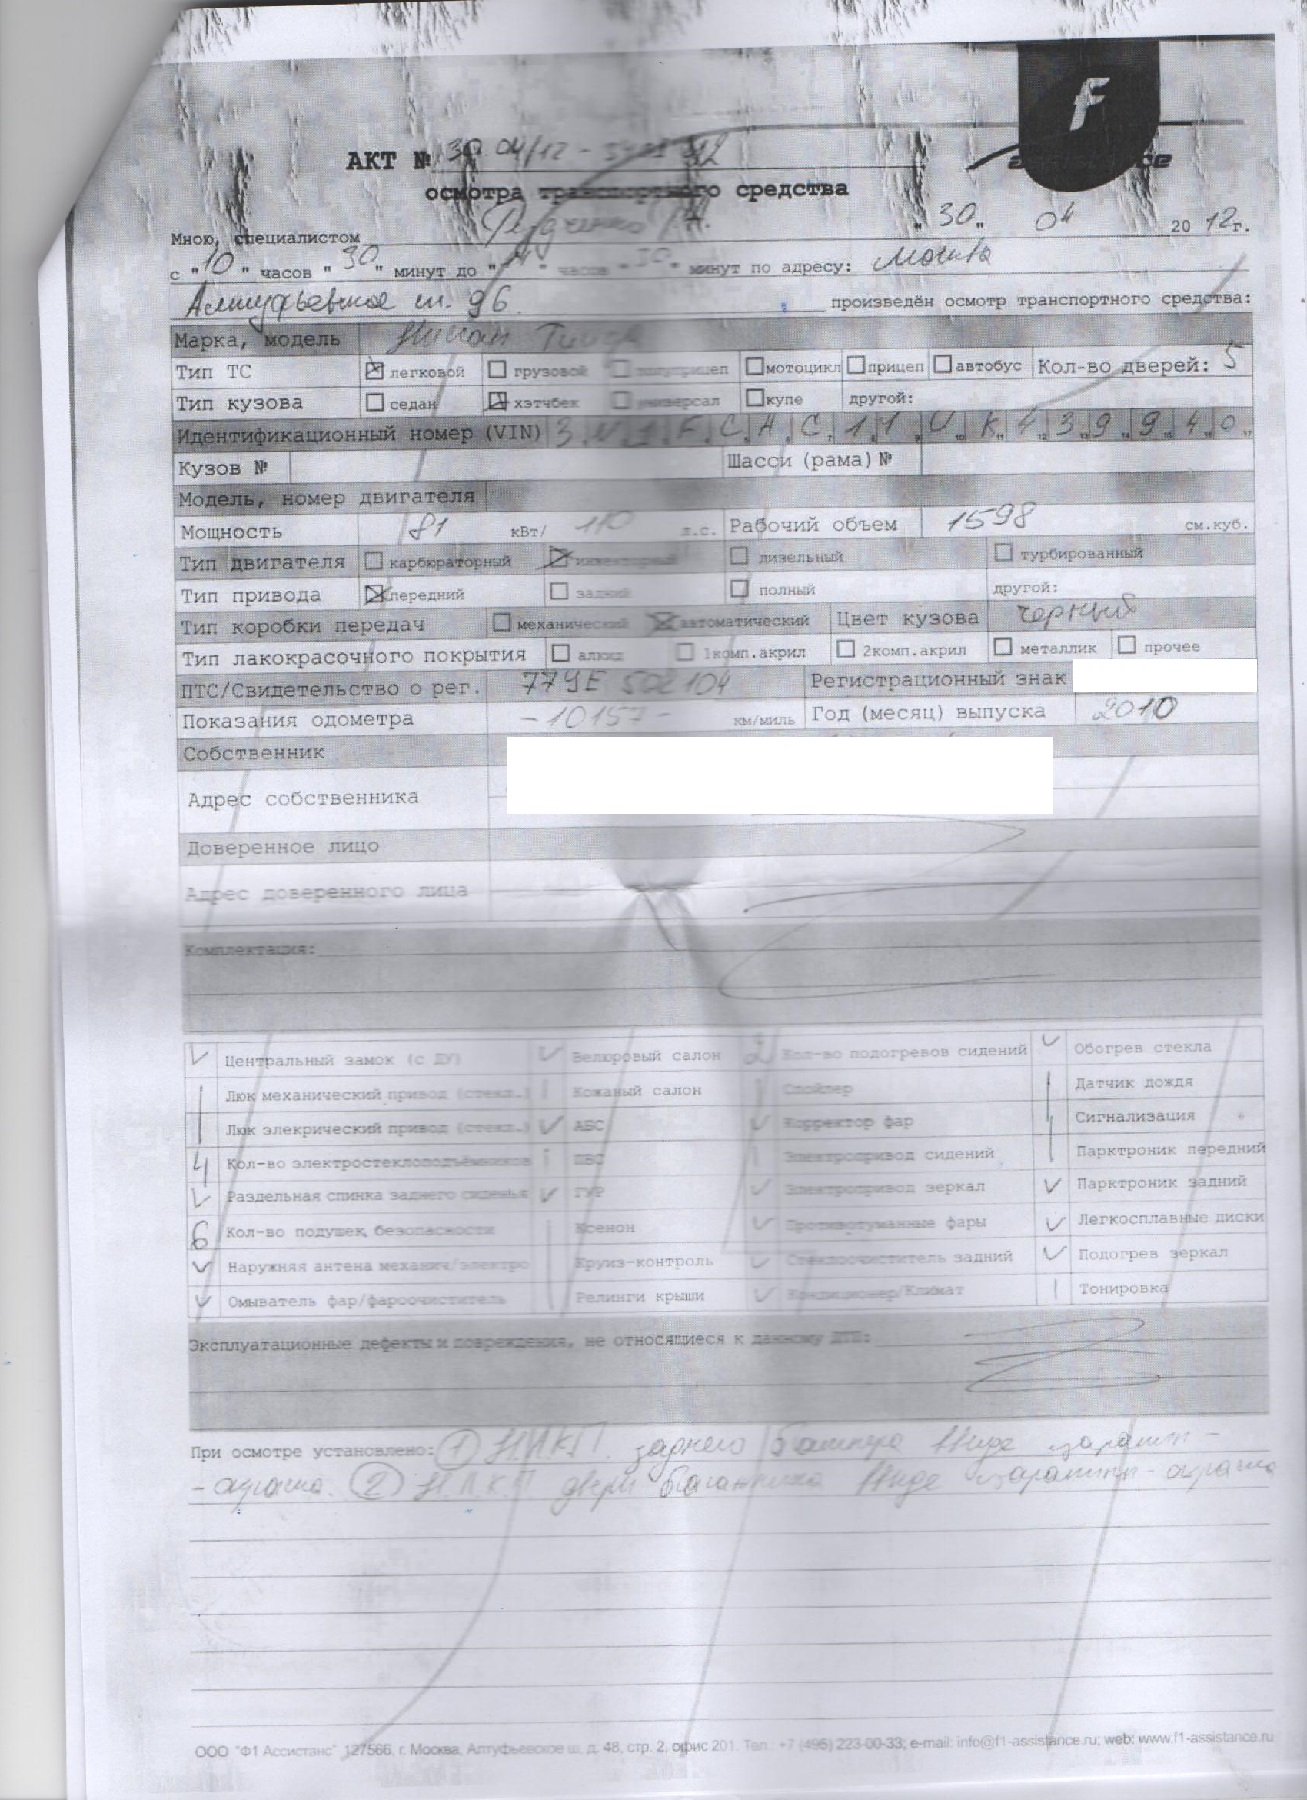 f
АКТ № 30 04/12 -
осмотра транспортного средства
Мною, специалистом " 30 " 04 20 12 г.
с " 10 " часов " 30 " минут до " " часов " 30 " минут по адресу: Москва
Алтуфьевское ш. 96 произведён осмотр транспортного средства:
Марка, модель Ниссан Тиида
Тип ТС легковой грузовой полуприцеп мотоцикл прицеп автобус Кол-во дверей: 5
Тип кузова седан хэтчбек универсал купе другой:
Идентификационный номер (VIN) 3 N 1 F C A C 1 1 U K 4 3 9 9 4 0
Кузов № Шасси (рама) №
Модель, номер двигателя
Мощность 81 кВт/ 110 л.с. Рабочий объем 1598 см.куб.
Тип двигателя карбюраторный инжекторный дизельный турбированный
Тип привода передний задний полный другой:
Тип коробки передач механический автоматический Цвет кузова черный
Тип лакокрасочного покрытия алкид 1комп.акрил 2комп.акрил металлик прочее
ПТС/Свидетельство о рег. 77УЕ 502104 Регистрационный знак
Показания одометра - 10157 - км/миль Год (месяц) выпуска 2010
Собственник
Адрес собственника
Доверенное лицо
Адрес доверенного лица
Комплектация:
Центральный замок (с ДУ) Велюровый салон 2 Кол-во подогревов сидений Обогрев стекла
Люк механический привод (стекл.) Кожаный салон Спойлер Датчик дождя
Люк элекрический привод (стекл.) АБС Корректор фар Сигнализация
4 Кол-во электростеклоподъёмников ПБС Электропривод сидений Парктроник передний
Раздельная спинка заднего сиденья ГУР Электропривод зеркал Парктроник задний
6 Кол-во подушек безопасности Ксенон Противотуманные фары Легкосплавные диски
Наружняя антена механич/электро Круиз-контроль Стеклоочиститель задний Подогрев зеркал
Омыватель фар/фароочиститель Релинги крыши Кондиционер/Климат Тонировка
Эксплуатационные дефекты и повреждения, не относящиеся к данному ДТП:
При осмотре установлено: 1 Н.ЛКП. заднего бампера ввиде царапин -
- окраска. 2 Н.ЛКП двери багажника ввиде царапин - окраска
ООО "Ф1 Ассистанс" 127566, г. Москва, Алтуфьевское ш. д. 48, стр. 2, офис 201. Тел.: +7 (495) 223-00-33; e-mail: info@f1-assistance.ru; web: www.f1-assistance.ru